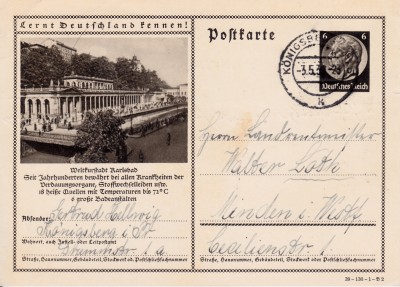 Lernt Deutschland kennen!
Weltkurstadt Karlsbad
Seit Jahrhunderten bewährt bei allen Krankheiten der
Verdauungsorgane, Stoffwechselleiden usw.
18 heiße Quellen mit Temperaturen bis 72°C
6 große Badeanstalten
Absender: Gertrud Hellwig
Königsberg i. Pr
Wohnort, auch Zustell- oder Leitpostamt
1 a
Straße, Hausnummer, Gebäudeteil, Stockwerk od. Postschließfachnummer
Postkarte
KÖNIGSBE
-3.5.3
k
6 6
Deutsches Reich
Herrn Landesmeister
Walter
Minden i. Westf
Cecilienstr 1
Straße, Hausnummer, Gebäudeteil, Stockwerk od. Postschließfachnummer
39-136-1-B2